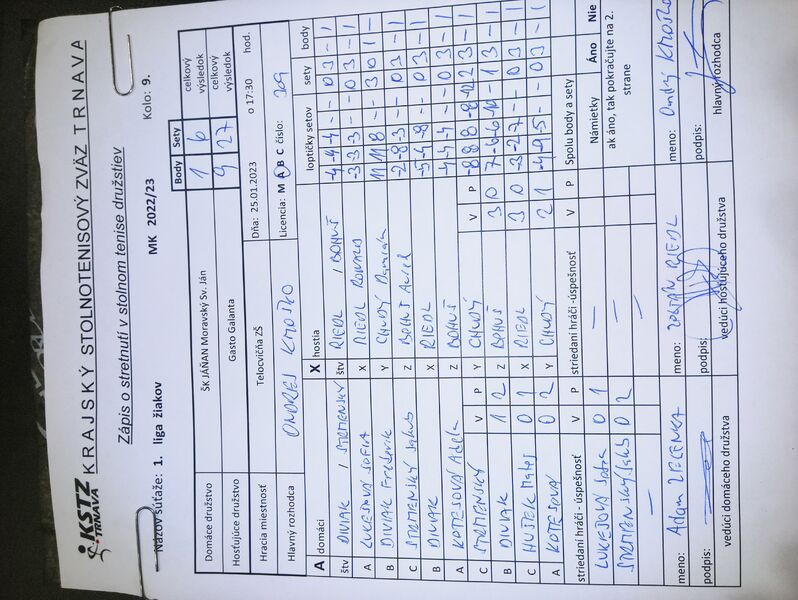 KSTZ
TRNAVA
KRAJSKÝ STOLNOTENISOVÝ ZVÄZ TRNAVA
Zápis o stretnutí v stolnom tenise družstiev
Názov súťaže: 1. liga žiakov MK 2022/23 Kolo: 9.
Body Sety
Domáce družstvo ŠK JÁŇAN Moravský Sv. Ján 1 6 celkový výsledok
Hosťujúce družstvo Gasto Galanta 9 27 celkový výsledok
Hracia miestnosť Telocvičňa ZŠ Dňa: 25.01.2023 o 17:30 hod.
Hlavný rozhodca ONDREJ KMOŠKO Licencia: M A B C číslo: 309
A domáci X hostia loptičky setov sety body
štv DIVIAK / STRMENSKÝ štv RIEDL / BOHUŠ -4 -4 -4 - - 0 3 - 1
A LUKEŠOVÁ SOFIA X RIEDL -3 -3 -3 - - 0 3 - 1
B DIVIAK Frederik Y CHUDÝ 11 11 8 - - 3 0 1 -
C STRMENSKÝ Jakub Z BOHUŠ -2 -8 -3 - - 0 3 - 1
B DIVIAK X RIEDL -5 -4 -8 - - 0 3 - 1
A KOTESOVÁ Adela Z BOHUŠ -4 -4 -4 - - 0 3 - 1
C STRMENSKÝ V P Y CHUDÝ V P
B DIVIAK 1 2 Z BOHUŠ 3 0
C HUŠEK Matej 0 1 X RIEDL 3 0 -3 -2 -7 - - 0 3 - 1
A KOTESOVÁ 0 2 Y CHUDÝ 2 1 -4 -9 -5 - - 0 3 - 1
striedaní hráči - úspešnosť V P striedaní hráči -úspešnosť V P Spolu body a sety
LUKEŠOVÁ 0 1 — Námietky Áno Nie
STRMENSKÝ Jakub 0 2 — ak áno, tak pokračujte na 2. strane
— —
meno: Adam ZECENKA meno: ZOLTÁN RIEDL meno: KMOŠKO
podpis: podpis: podpis:
vedúci domáceho družstva vedúci hosťujúceho družstva hlavný rozhodca